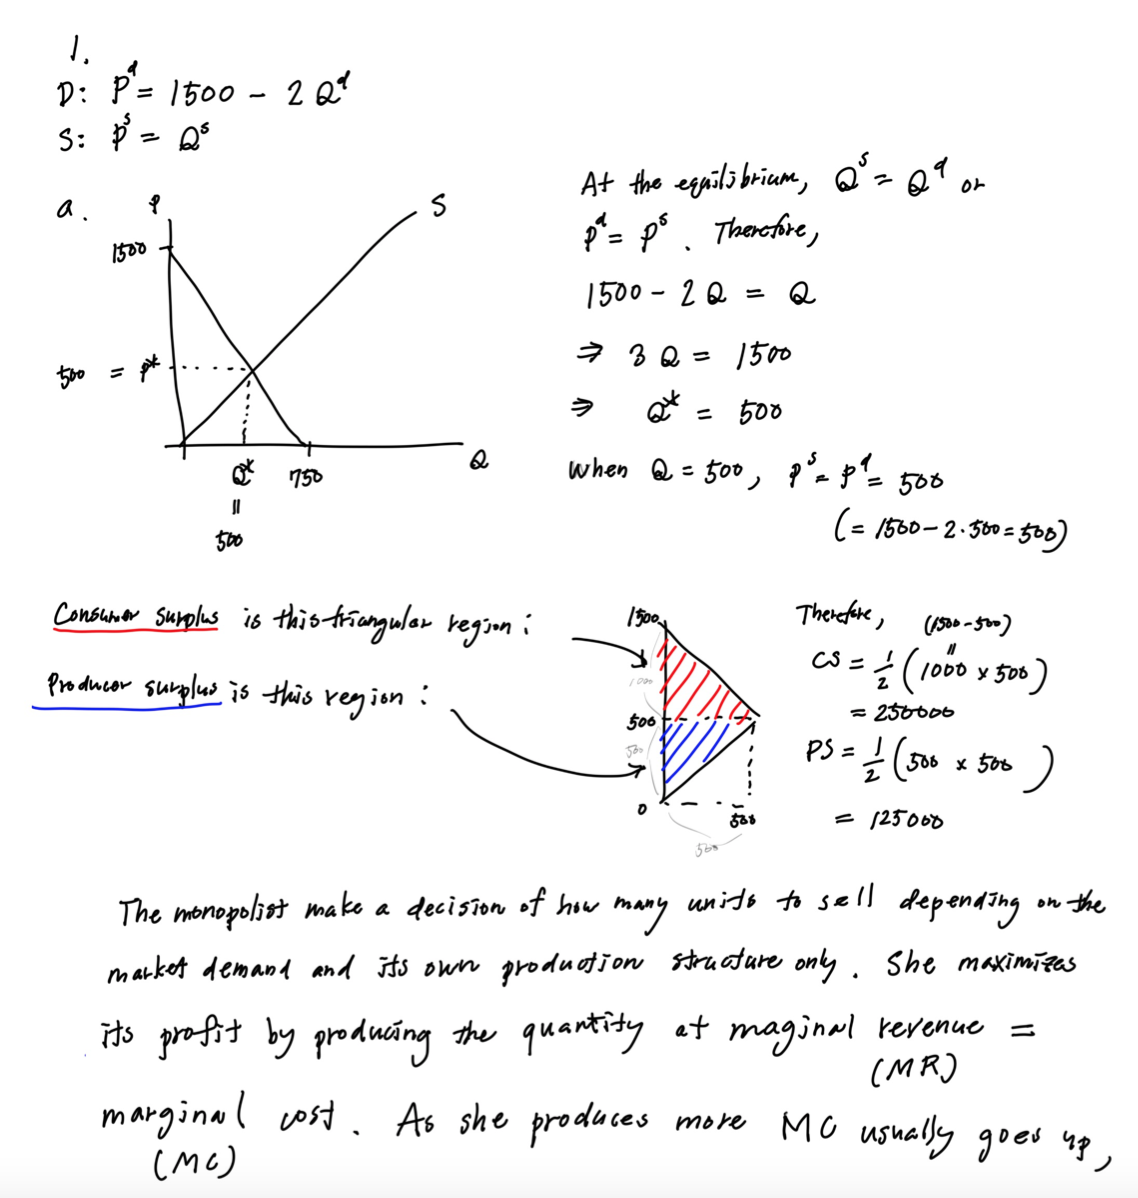 1.
D: P^d = 1500 - 2Q^d
S: P^s = Q^s
a.
P
S
1500
500 = P*
Q* 750 Q
||
500
At the equilibrium, Q^s = Q^d or
P^d = P^s. Therefore,
1500 - 2Q = Q
⇒ 3Q = 1500
⇒ Q* = 500
When Q = 500, P^s = P^d = 500
(= 1500 - 2·500 = 500)
Consumer surplus is this triangular region:
Producer surplus is this region:
1500
1000
500
500
0
500
500
Therefore, (1500-500)
||
CS = 1/2 (1000 × 500)
= 250000
PS = 1/2 (500 × 500)
= 125000
The monopolist make a decision of how many units to sell depending on the
market demand and its own production structure only. She maximizes
its profit by producing the quantity at maginal revenue =
(MR)
marginal cost. As she produces more MC usually goes up,
(MC)